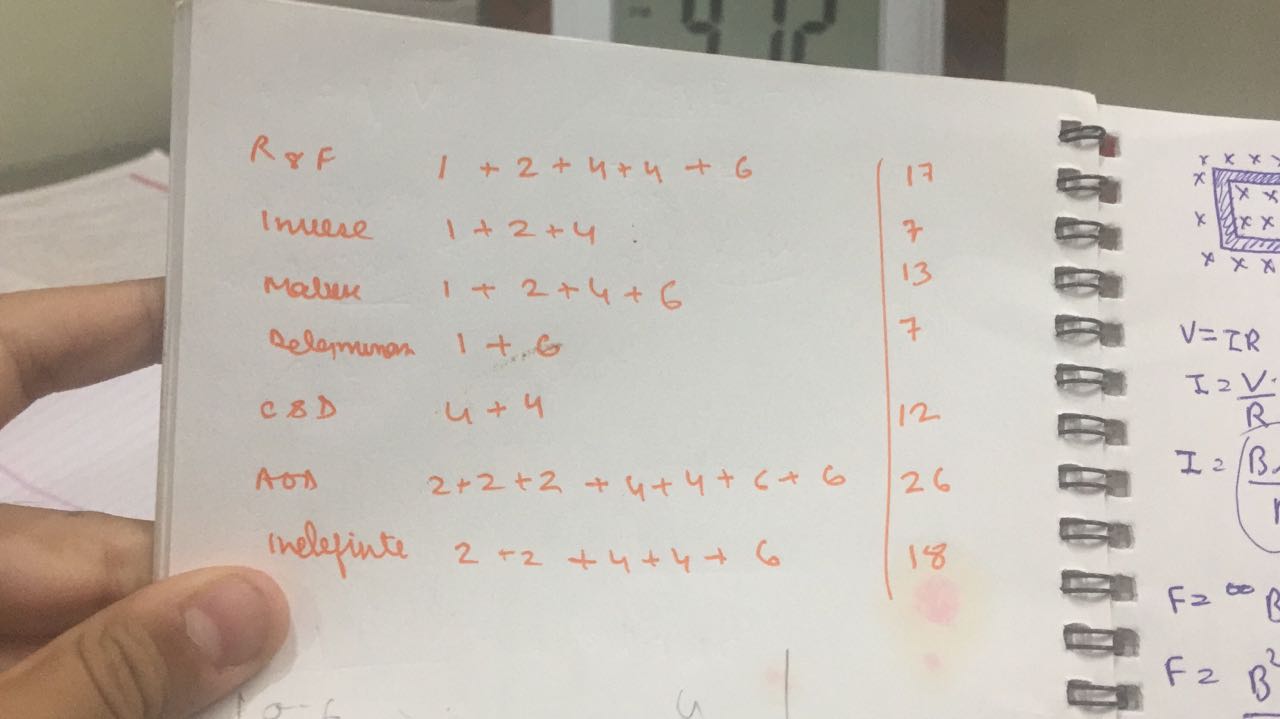 9:12
R&F 1 + 2 + 4 + 4 + 6 17
Inverse 1 + 2 + 4 7
Matrix 1 + 2 + 4 + 6 13
1 + 6 7
C&D 4 + 4 12
AOD 2+2+2 + 4 + 4 + 6 + 6 26
Indefinte 2 + 2 + 4 + 4 + 6 18
V = IR
I = V
R
I = B
F =
F = B²